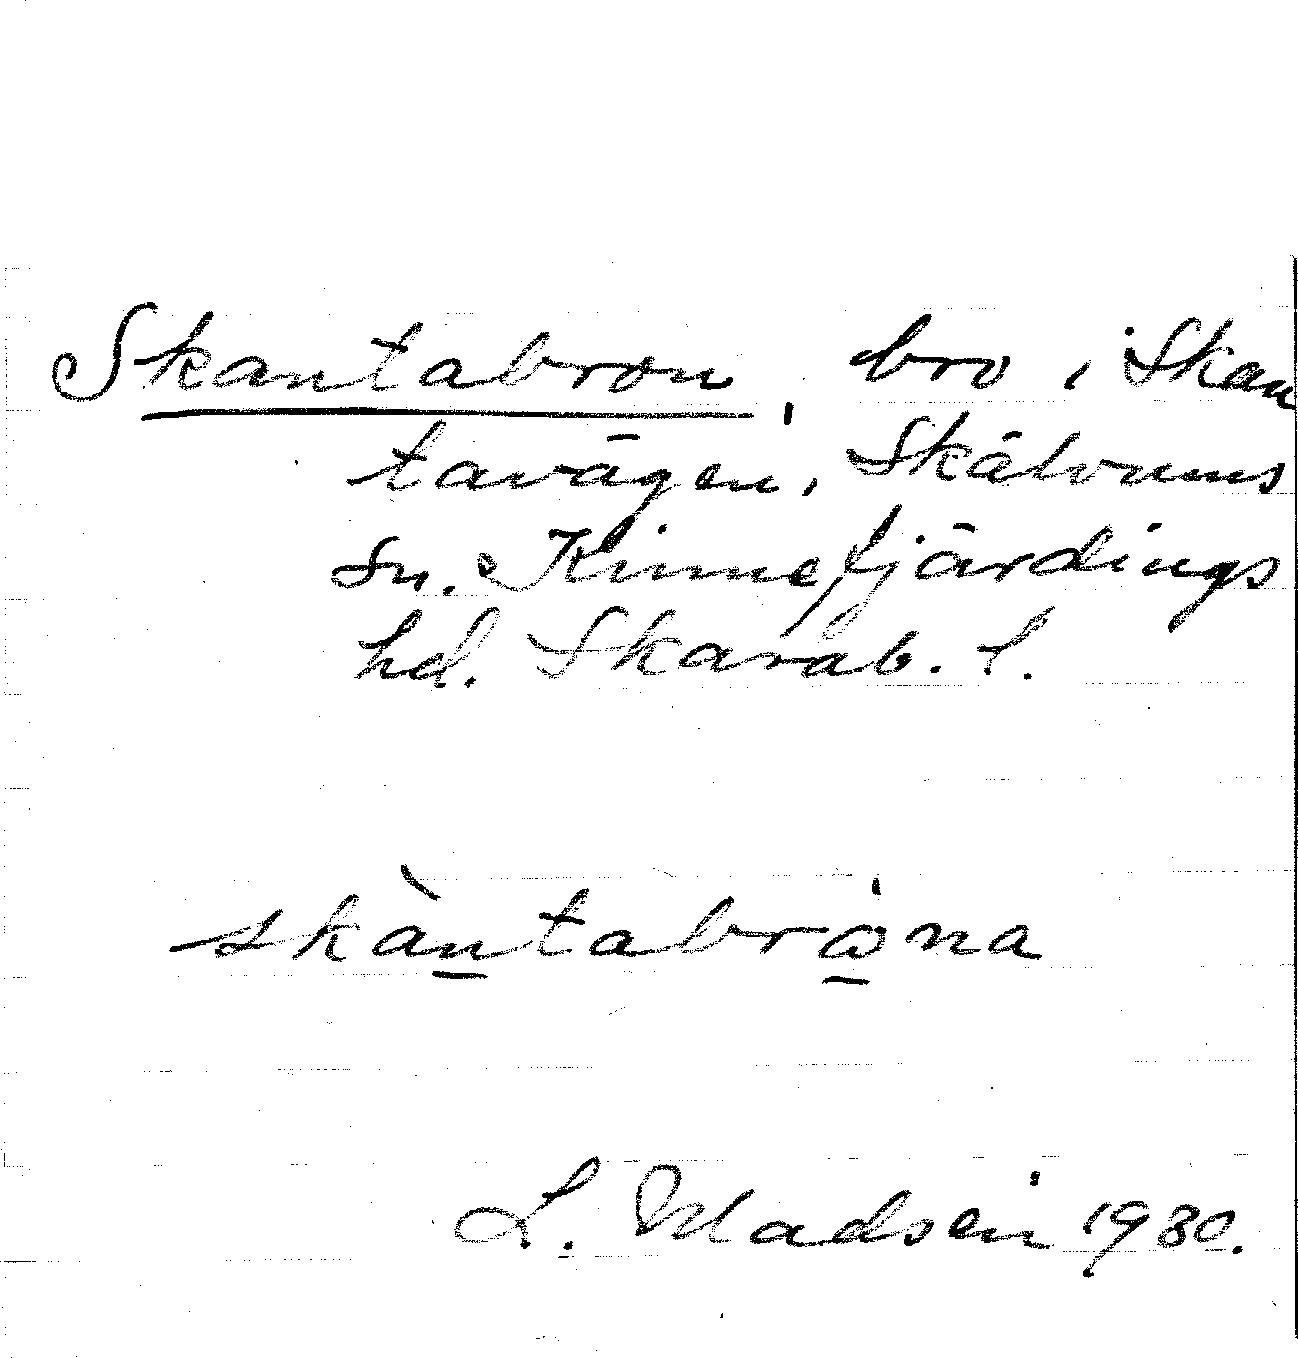 Skantabron, bro i Skan
tavägen, Skälvums
sn. Kinnefjärdings
hd. Skarab. l.
skàntabrω̇na
L. Madsen 1930.